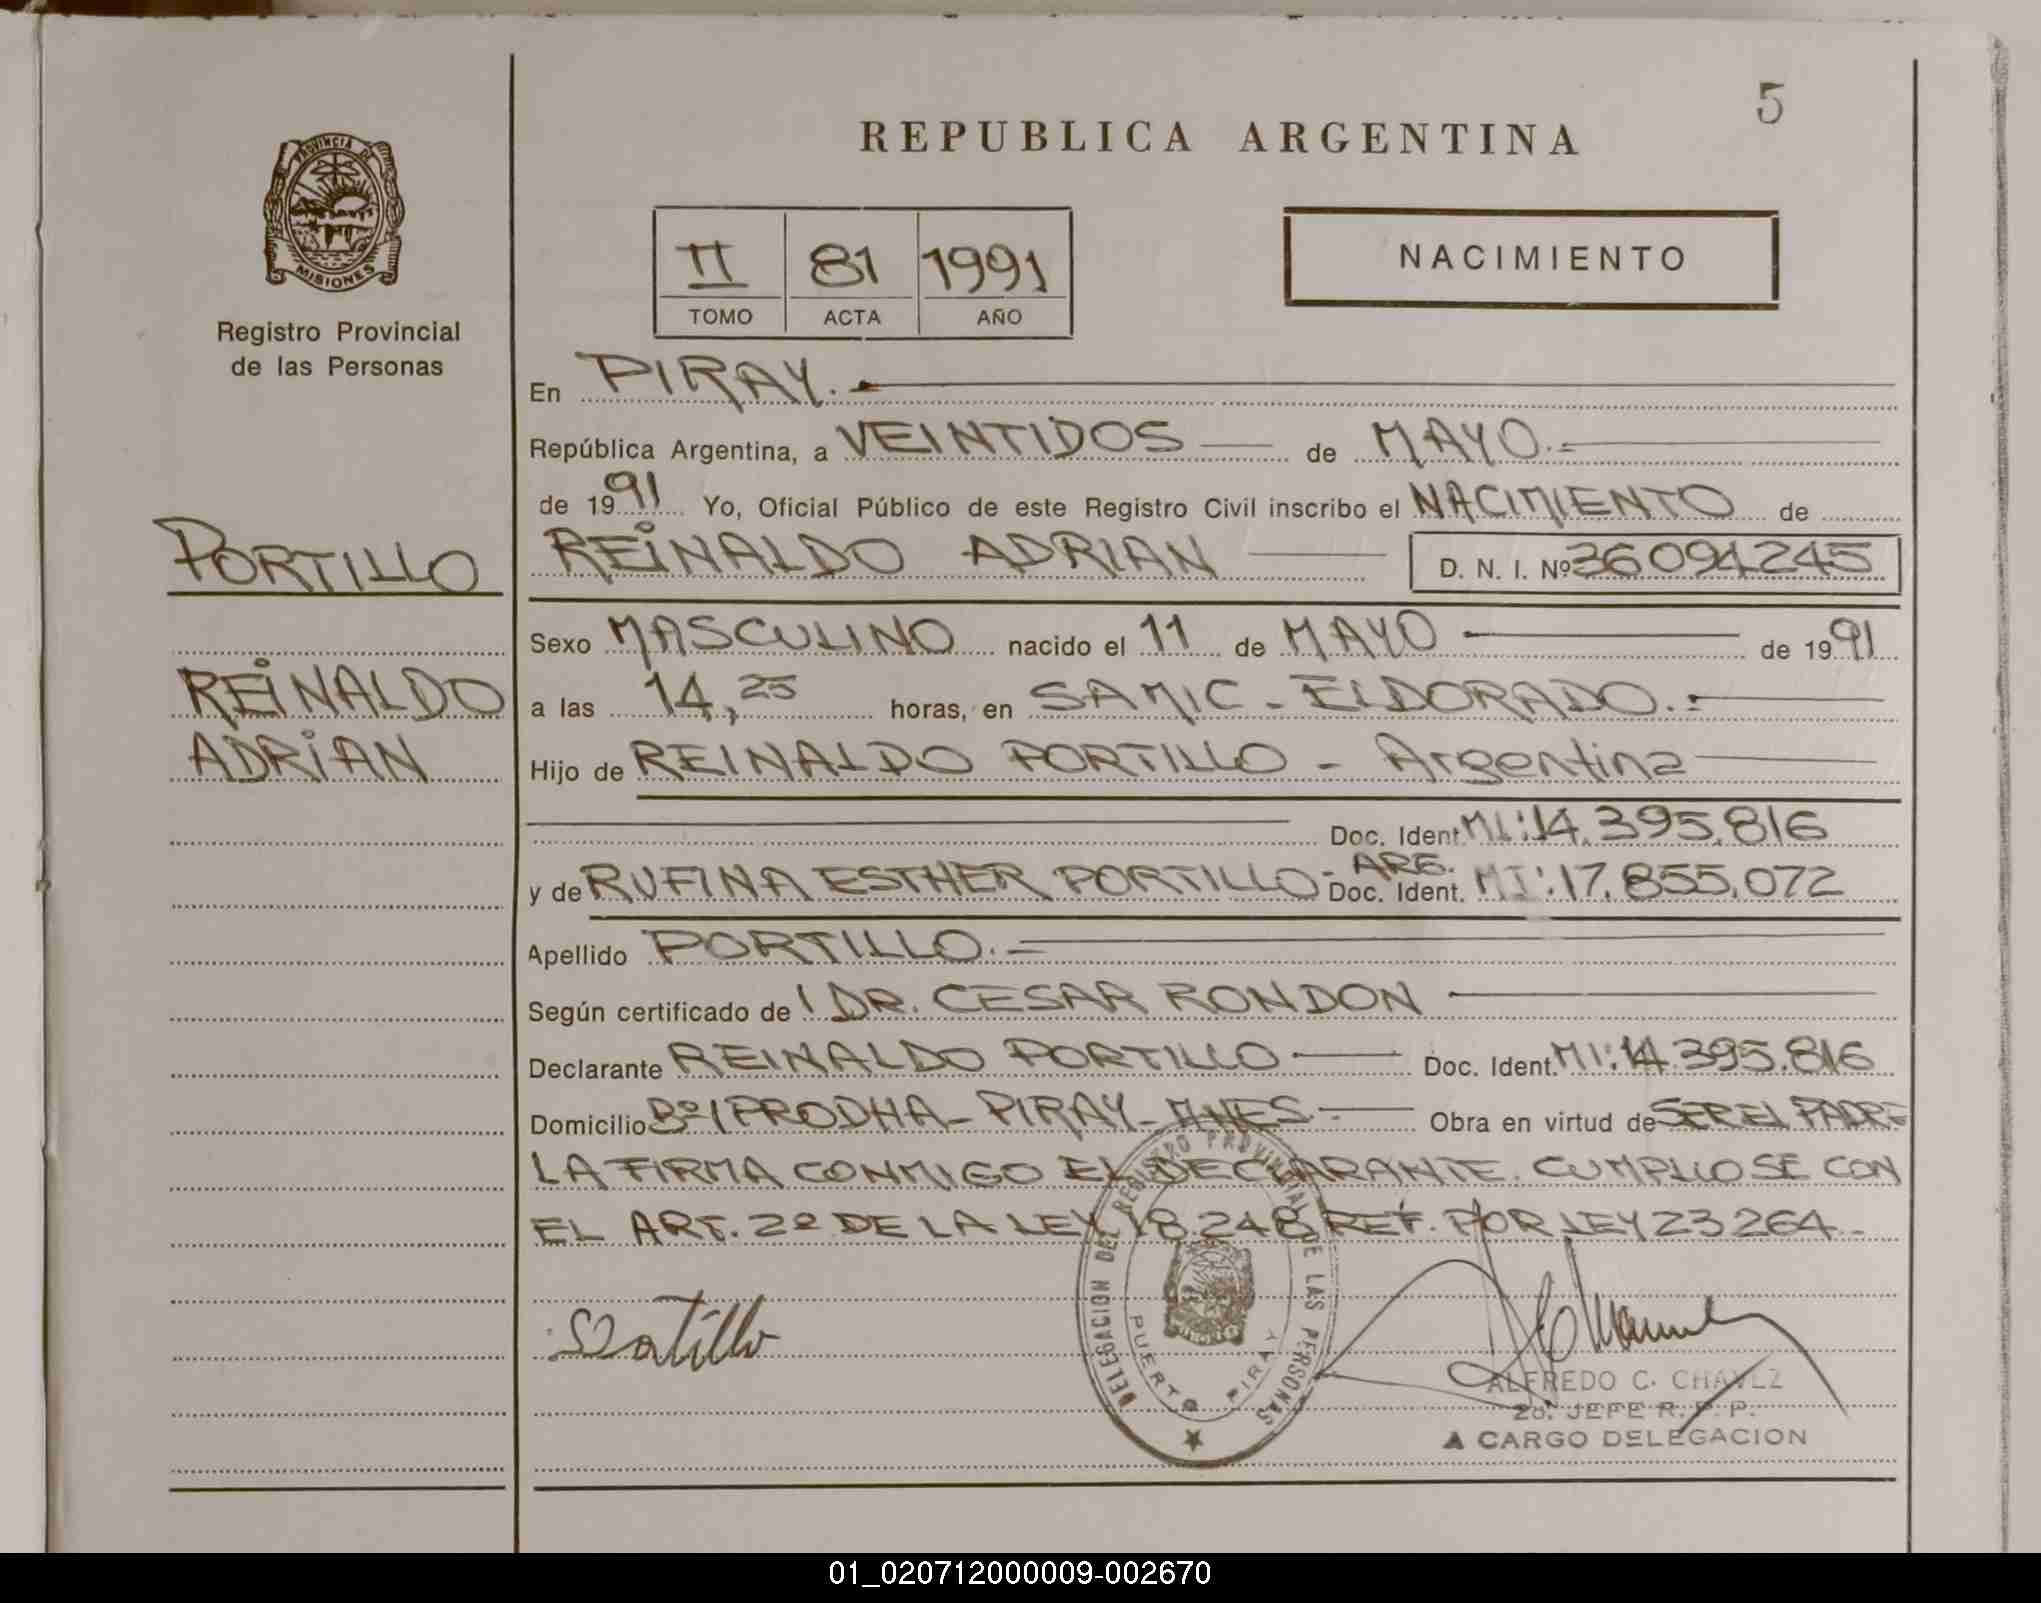 5
REPUBLICA ARGENTINA
PROVINCIA DE
MISIONES
Registro Provincial
de las Personas
II 81 1991
TOMO ACTA AÑO
NACIMIENTO
En PIRAY.
República Argentina, a VEINTIDOS de MAYO.
de 1991 Yo, Oficial Público de este Registro Civil inscribo el NACIMIENTO de
PORTILLO
REINALDO ADRIAN D. N. I. Nº 36094245
REINALDO
ADRIAN
Sexo MASCULINO nacido el 11 de MAYO de 1991
a las 14,25 horas, en SAMIC - ELDORADO.-
Hijo de REINALDO PORTILLO - Argentina
Doc. Ident. MI:14.395.816
y de RUFINA ESTHER PORTILLO - ARG. Doc. Ident. MI:17.855.072
Apellido PORTILLO.-
Según certificado de DR. CESAR RONDON
Declarante REINALDO PORTILLO Doc. Ident. MI:14.395.816
Domicilio Bº IPRODHA - PIRAY - MNES.- Obra en virtud de SER EL PADRE
LA FIRMA CONMIGO EL DECLARANTE. CUMPLIOSE CON
EL ART. 2º DE LA LEY 18248 REF. POR LEY 23264.-
Portillo
DELEGACION DEL REGISTRO PROVINCIAL DE LAS PERSONAS
PUERTO PIRAY
ALFREDO C. CHAVEZ
2do. JEFE R. P. P.
A CARGO DELEGACION
01_020712000009-002670